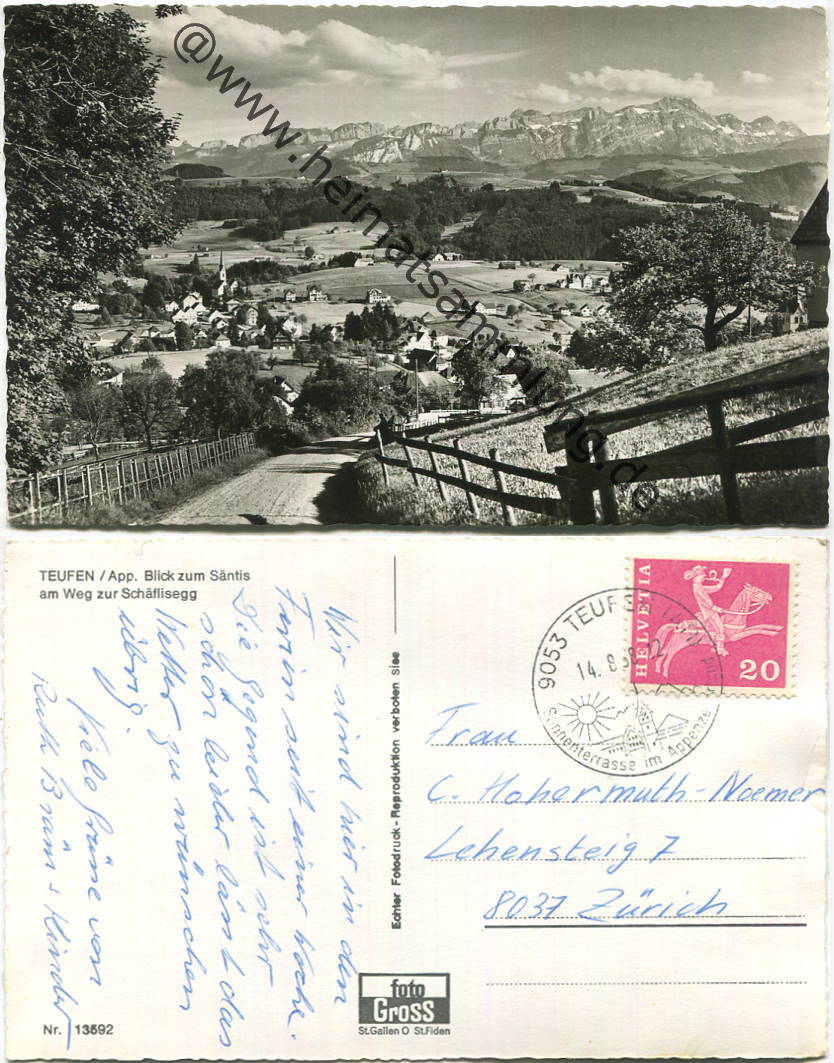 @www.heimatsammlung.de
TEUFEN / App. Blick zum Säntis
am Weg zur Schäflisegg
Wir sind hier in den
seit einer Woche.
Die Gegend ist sehr
schön leider lässt das
Wetter zu wünschen
übrig.
Viele Grüsse von
Ruth + Kinder
Nr. 13592
Echter Fotodruck - Reproduktion verboten
foto
GROSS
St.Gallen O St.Fiden
HELVETIA
20
9053 TEUFEN
14. 8.
Sonnenterrasse im Appenzell
Frau
C. Hohermuth-Noemer
Lehensteig 7
8037 Zürich